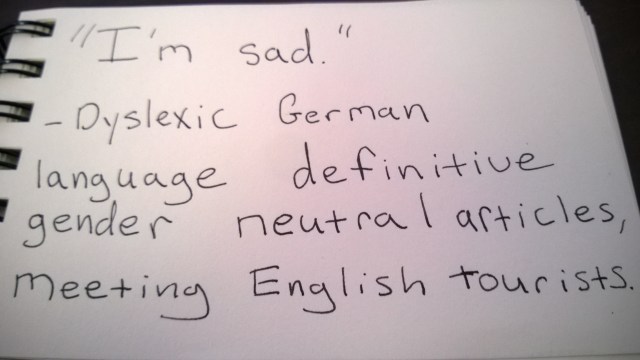 "I'm sad."
- Dyslexic German
language definitive
gender neutral articles,
meeting English tourists.